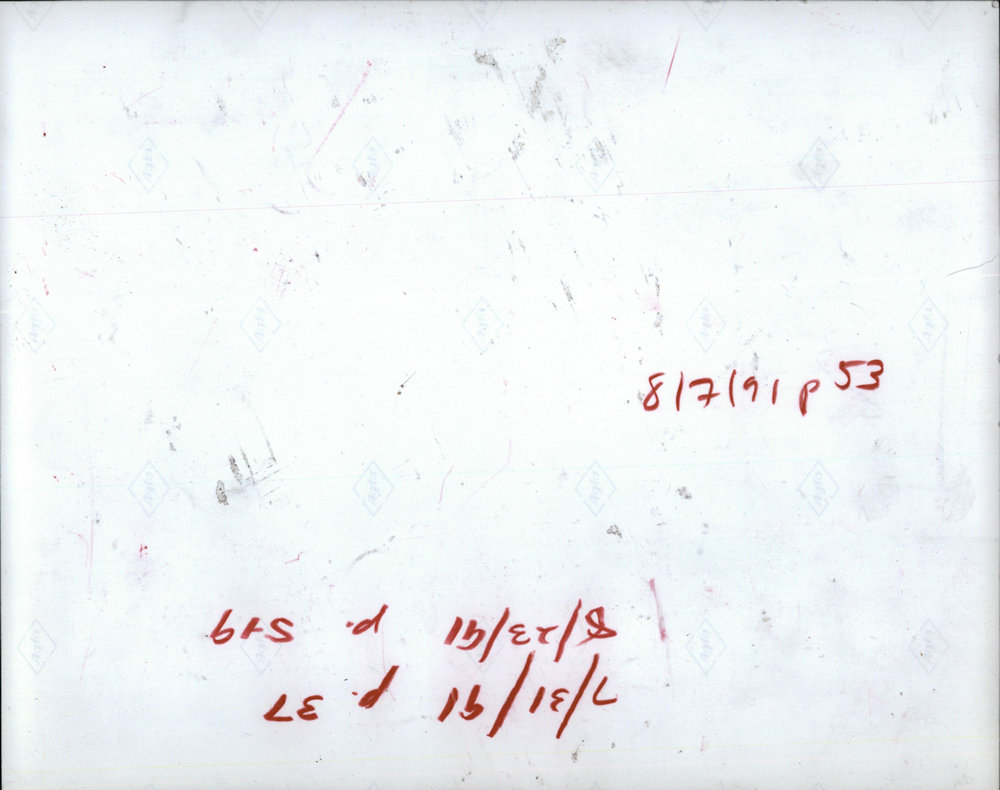 8/7/91 p 53
7/31/91 p. 37
8/23/91 p. 5+9